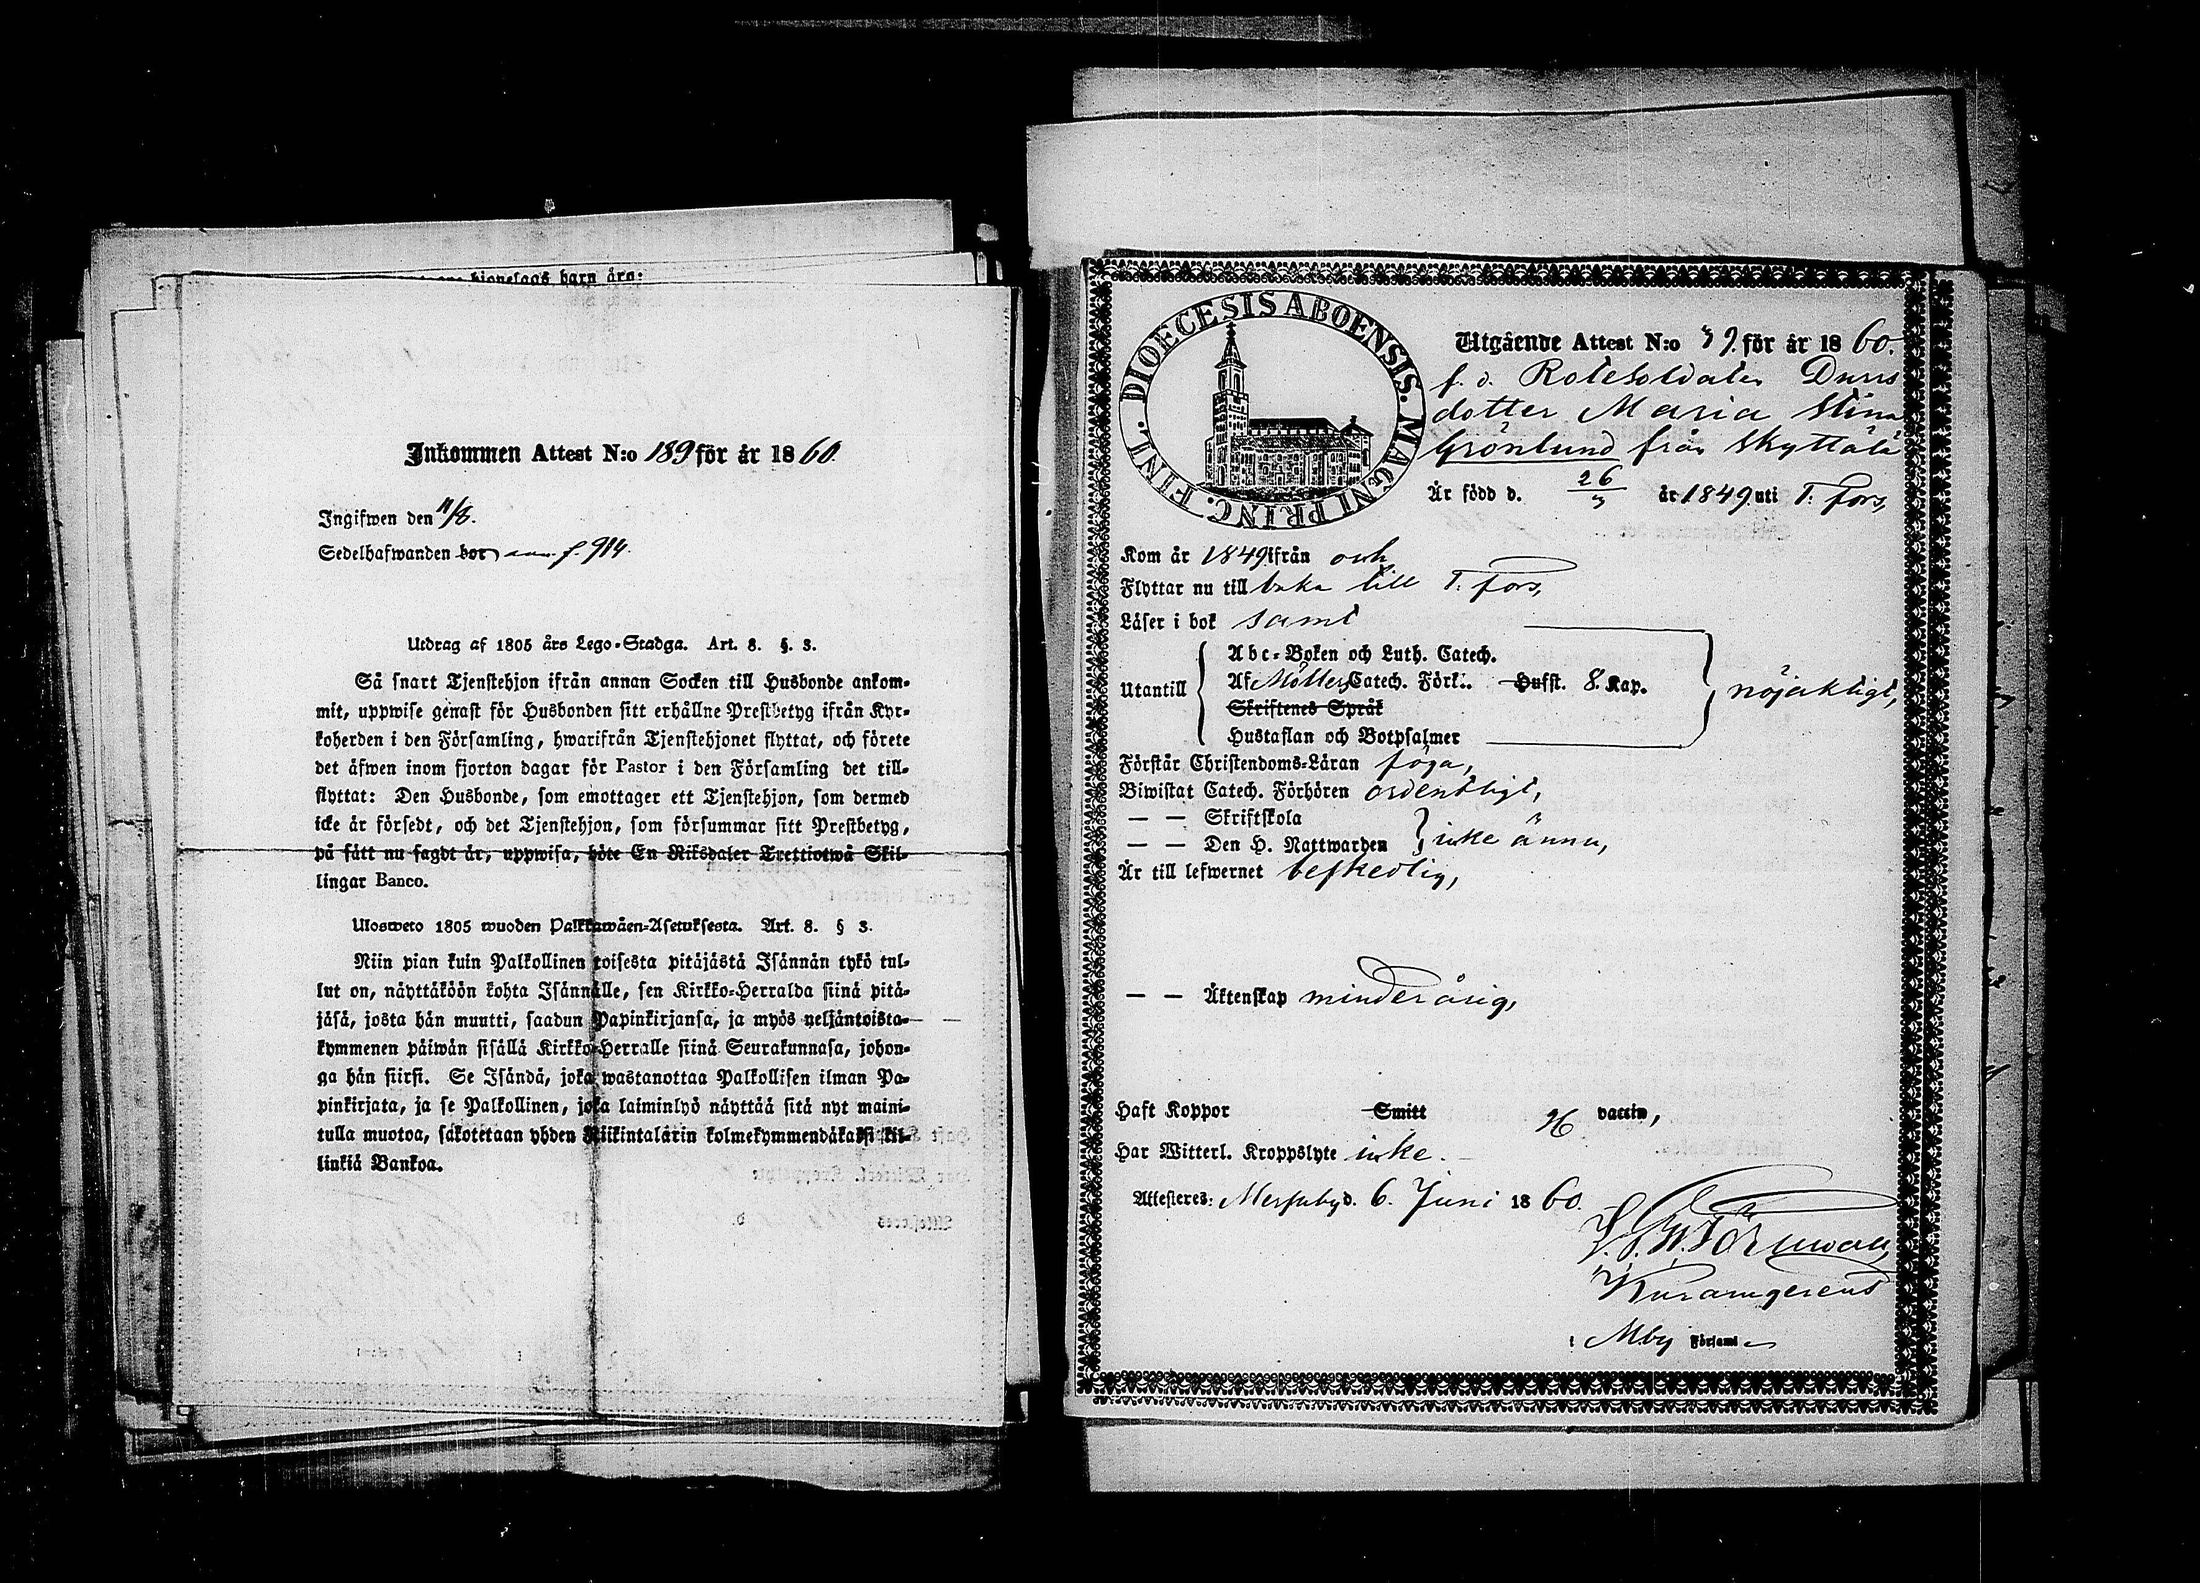 kionelags barn äro:
Inkommen Attest N:o 189 för år 1860.
Ingifwen den 11/8.
Sedelhafwanden bor ann. f. 914.
Utdrag af 1805 års Lego-Stadga. Art. 8. §. 3.
Så snart Tjenstehjon ifrån annan Socken till Husbonde ankom-
mit, uppwise genast för Husbonden sitt erhållne Prestbetyg ifrån Kyr-
koherden i den Församling, hwarifrån Tjenstehjonet flyttat, och förete
det äfwen inom fjorton dagar för Pastor i den Församling det till-
flyttat: Den Husbonde, som emottager ett Tjenstehjon, som dermed
icke är försedt, och det Tjenstehjon, som försummar sitt Prestbetyg,
på sätt nu sagdt är, uppwisa, böte En Riksdaler Trettiotwå Skil-
lingar Banco.
Ulosweto 1805 wuoden Palkkawäen-Asetuksesta. Art. 8. § 3.
Niin pian kuin Palkollinen toisesta pitäjästä Isännän tykö tul-
lut on, näyttäköön kohta Isännälle, sen Kirkko-Herralda siinä pitä-
jäsä, josta hän muutti, saadun Papinkirjansa, ja myös neljäntoista-
kymmenen päiwän sisällä Kirkko-Herralle siinä Seurakunnasa, johon-
ga hän siirsi. Se Isändä, joka wastanottaa Palkollisen ilman Pa-
pinkirjata, ja se Palkollinen, joka laiminlyö näyttää sitä nyt maini-
tulla muotoa, sakotetaan yhden Riikintalärin kolmekymmendäkaksi kil-
linkiä Bankoa.
DIOECESIS ABOENSIS. MAGNI PRINC. FINL.
Utgående Attest N:o 39. för år 1860.
f. d. Rotesoldaten Durs
dotter Maria Stina
Grönlund från Skyttälä
Är född d. 26/3 år 1849. uti T. fors,
Kom år 1849 ifrån och
Flyttar nu till baka till T. fors,
Läser i bok samt
Utantill
Abc-Boken och Luth. Catech.
Af Möllers Catech. Förk:. Hufst. 8. Kap.
Skriftenes Språk
nöjaktigt,
Hustaflan och Botpsalmer
Förstår Christendoms-Läran föga,
Biwistat Catech. Förhören ordentligt,
— — Skriftskola
— — Den H. Nattwarden icke ännu,
Är till lefwernet beskedlig,
— — Äktenskap minderårig,
Haft Koppor Smitt vaccin,
Har Witterl. Kroppslyte icke.
Attesteres: Merjuby d. 6. Juni 1860.
Törnwall
i Mby Församl